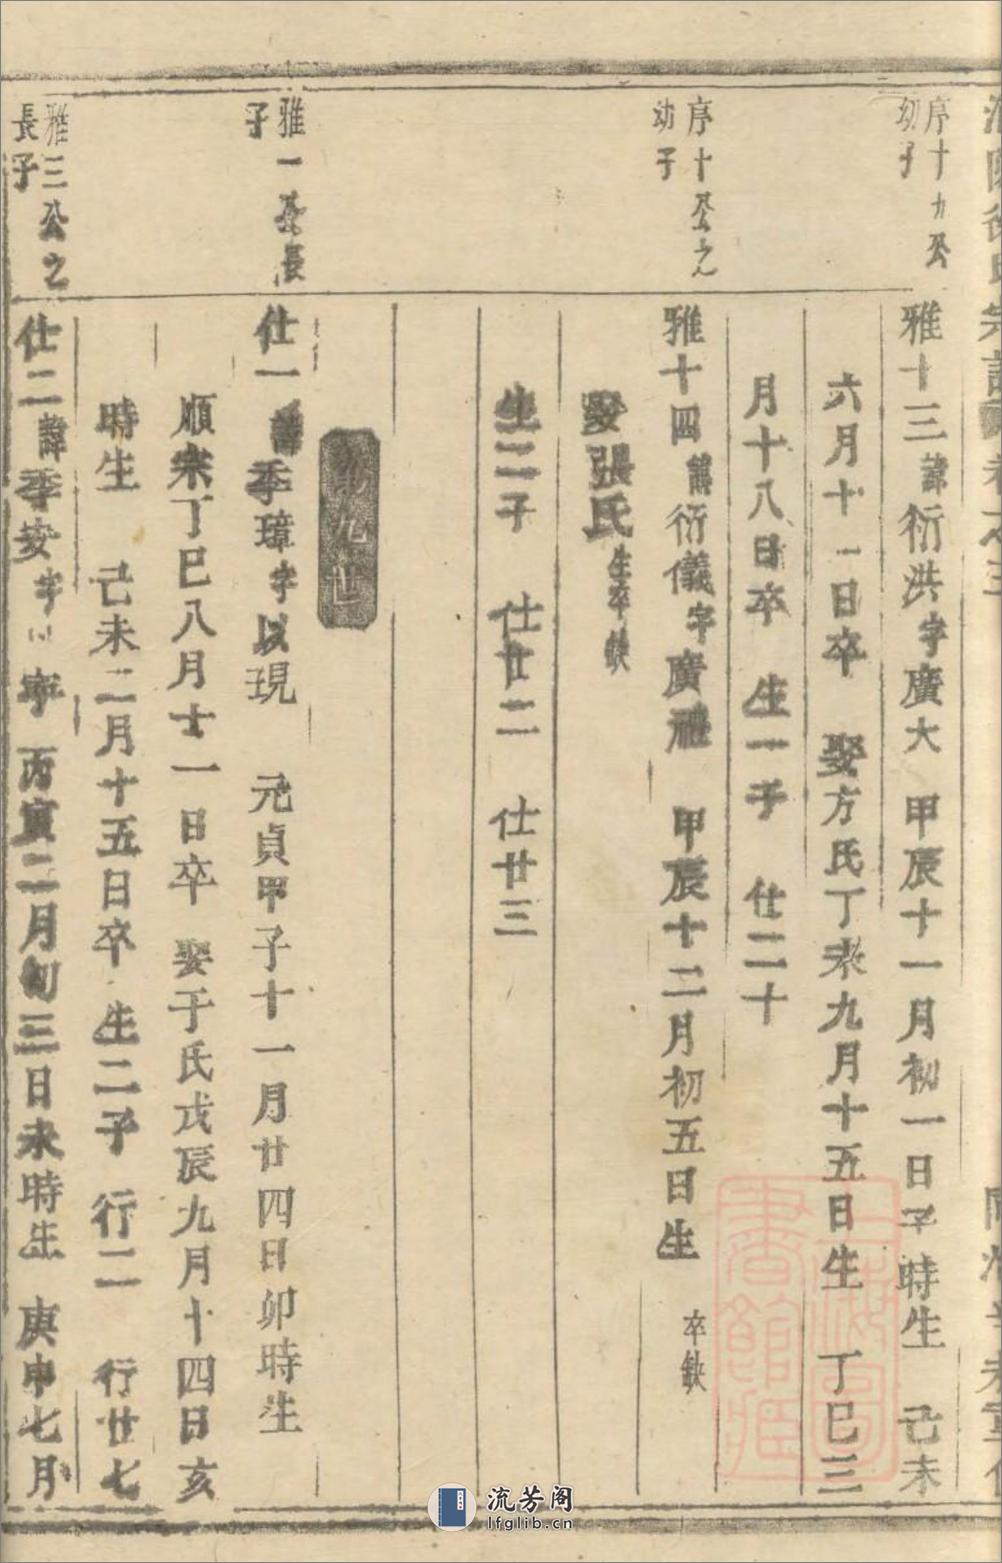 序十九公
幼子
雅十三諱衍洪字廣大 甲辰十一月初一日子時生 己未
六月十一日卒 娶方氏丁未九月十五日生 丁巳三
月十八日卒 生一子 仕二十
序十公之
幼子
雅十四諱衍儀字廣禮 甲辰十二月初五日生 卒缺
娶張氏生卒缺
生二子 仕廿二 仕廿三
第九世
雅一公長
子
仕一諱季璋字以現 元貞甲子十一月廿四日卯時生
順宗丁巳八月十一日卒 娶于氏戊辰九月十四日亥
時生 己未二月十五日卒 生二子 行二 行廿七
雅三公之
長子
仕二諱季安字以寧 丙寅二月初三日未時生 庚申七月
流芳阁
lfglib.cn